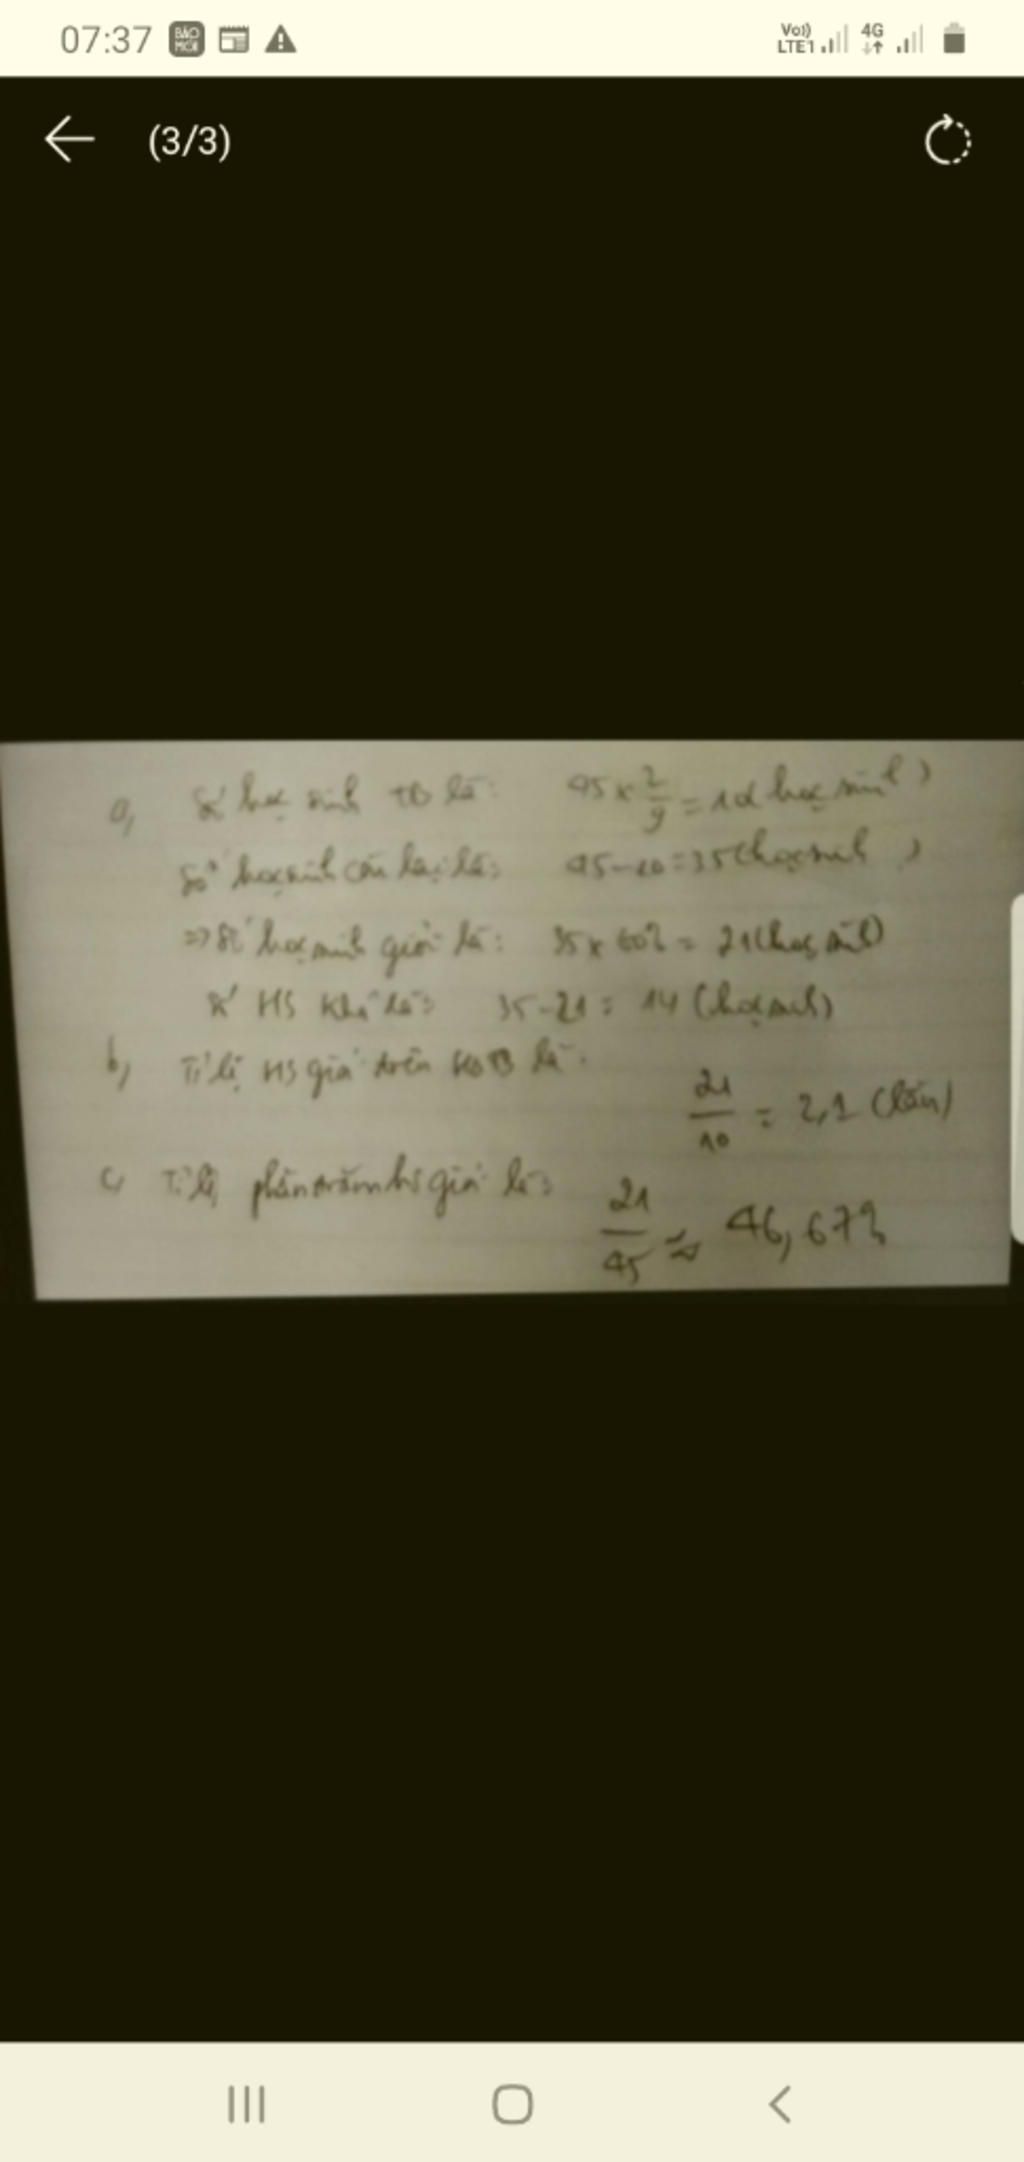 07:37 BÁO MỚI Vo)) LTE1 4G
(3/3)
a, Số học sinh TB là: 45 x 2/9 = 10 (học sinh)
Số học sinh còn lại là: 45-10=35 (học sinh)
=> Số học sinh giỏi là: 35 x 60% = 21 (học sinh)
Số HS Khá là: 35-21= 14 (học sinh)
b, Tỉ lệ HS giỏi trên HSTB là:
21/10 = 2,1 (lần)
c, Tỉ lệ phần trăm hs giỏi là:
21/45 ≈ 46,67%